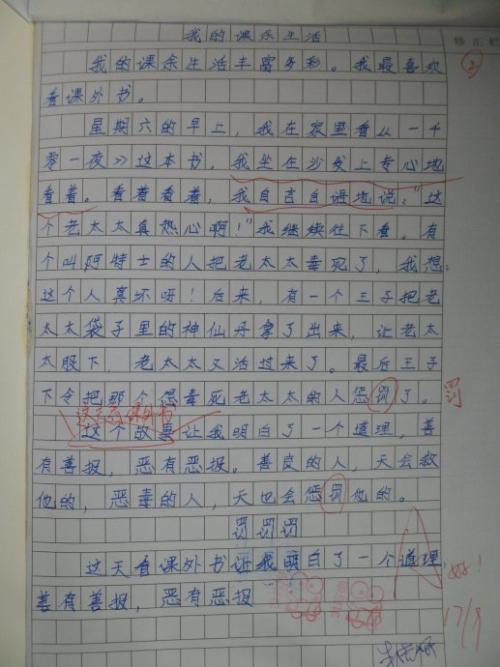 我的课余生活
我的课余生活丰富多彩。我最喜欢
看课外书。
星期六的早上，我在家里看《一千
零一夜》这本书，我坐在沙发上专心地
看着。看着看着，我自言自语地说："这
个老太太真热心啊！"我继续往下看。有
个叫阿特士的人把老太太毒死了，我想：
这个人真坏呀！后来，有一个王子把老
太太袋子里的神仙丹拿了出来，让老太
太服下，老太太又活过来了。最后王子
下令把那个想毒死老太太的人惩罚了。
罚
这个故事让我明白了一个道理，善
有善报，恶有恶报。善良的人，天会救
他的，恶毒的人，天也会惩罚他的。
罚罚罚
这天看课外书让我明白了一个道理，
善有善报，恶有恶报
好！
17/9